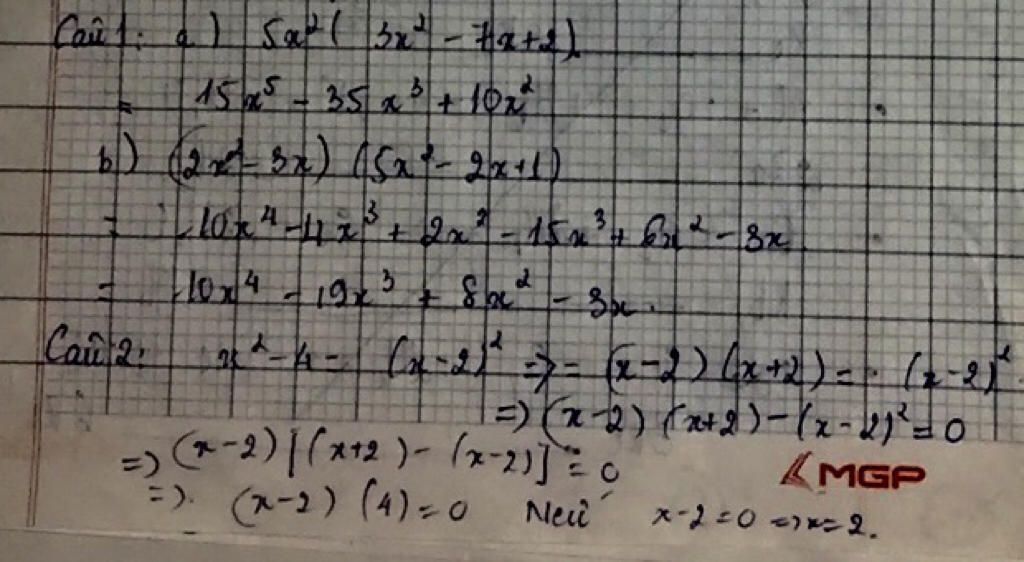 Câu 1: a) 5x² ( 3x² - 7x + 2).
= 15x⁵ - 35x³ + 10x²
b) (2x² - 3x) (5x² - 2x + 1)
= 10x⁴ - 4x³ + 2x² - 15x³ + 6x² - 3x
= 10x⁴ - 19x³ + 8x² - 3x.
Câu 2: x² - 4 = (x-2)² => = (x-2) (x+2) = (x-2)²
=> (x-2) (x+2) - (x-2)² = 0
=> (x-2) [(x+2) - (x-2)] = 0
MGP
=> (x-2) (4) = 0 Nếu x-2=0 => x=2.